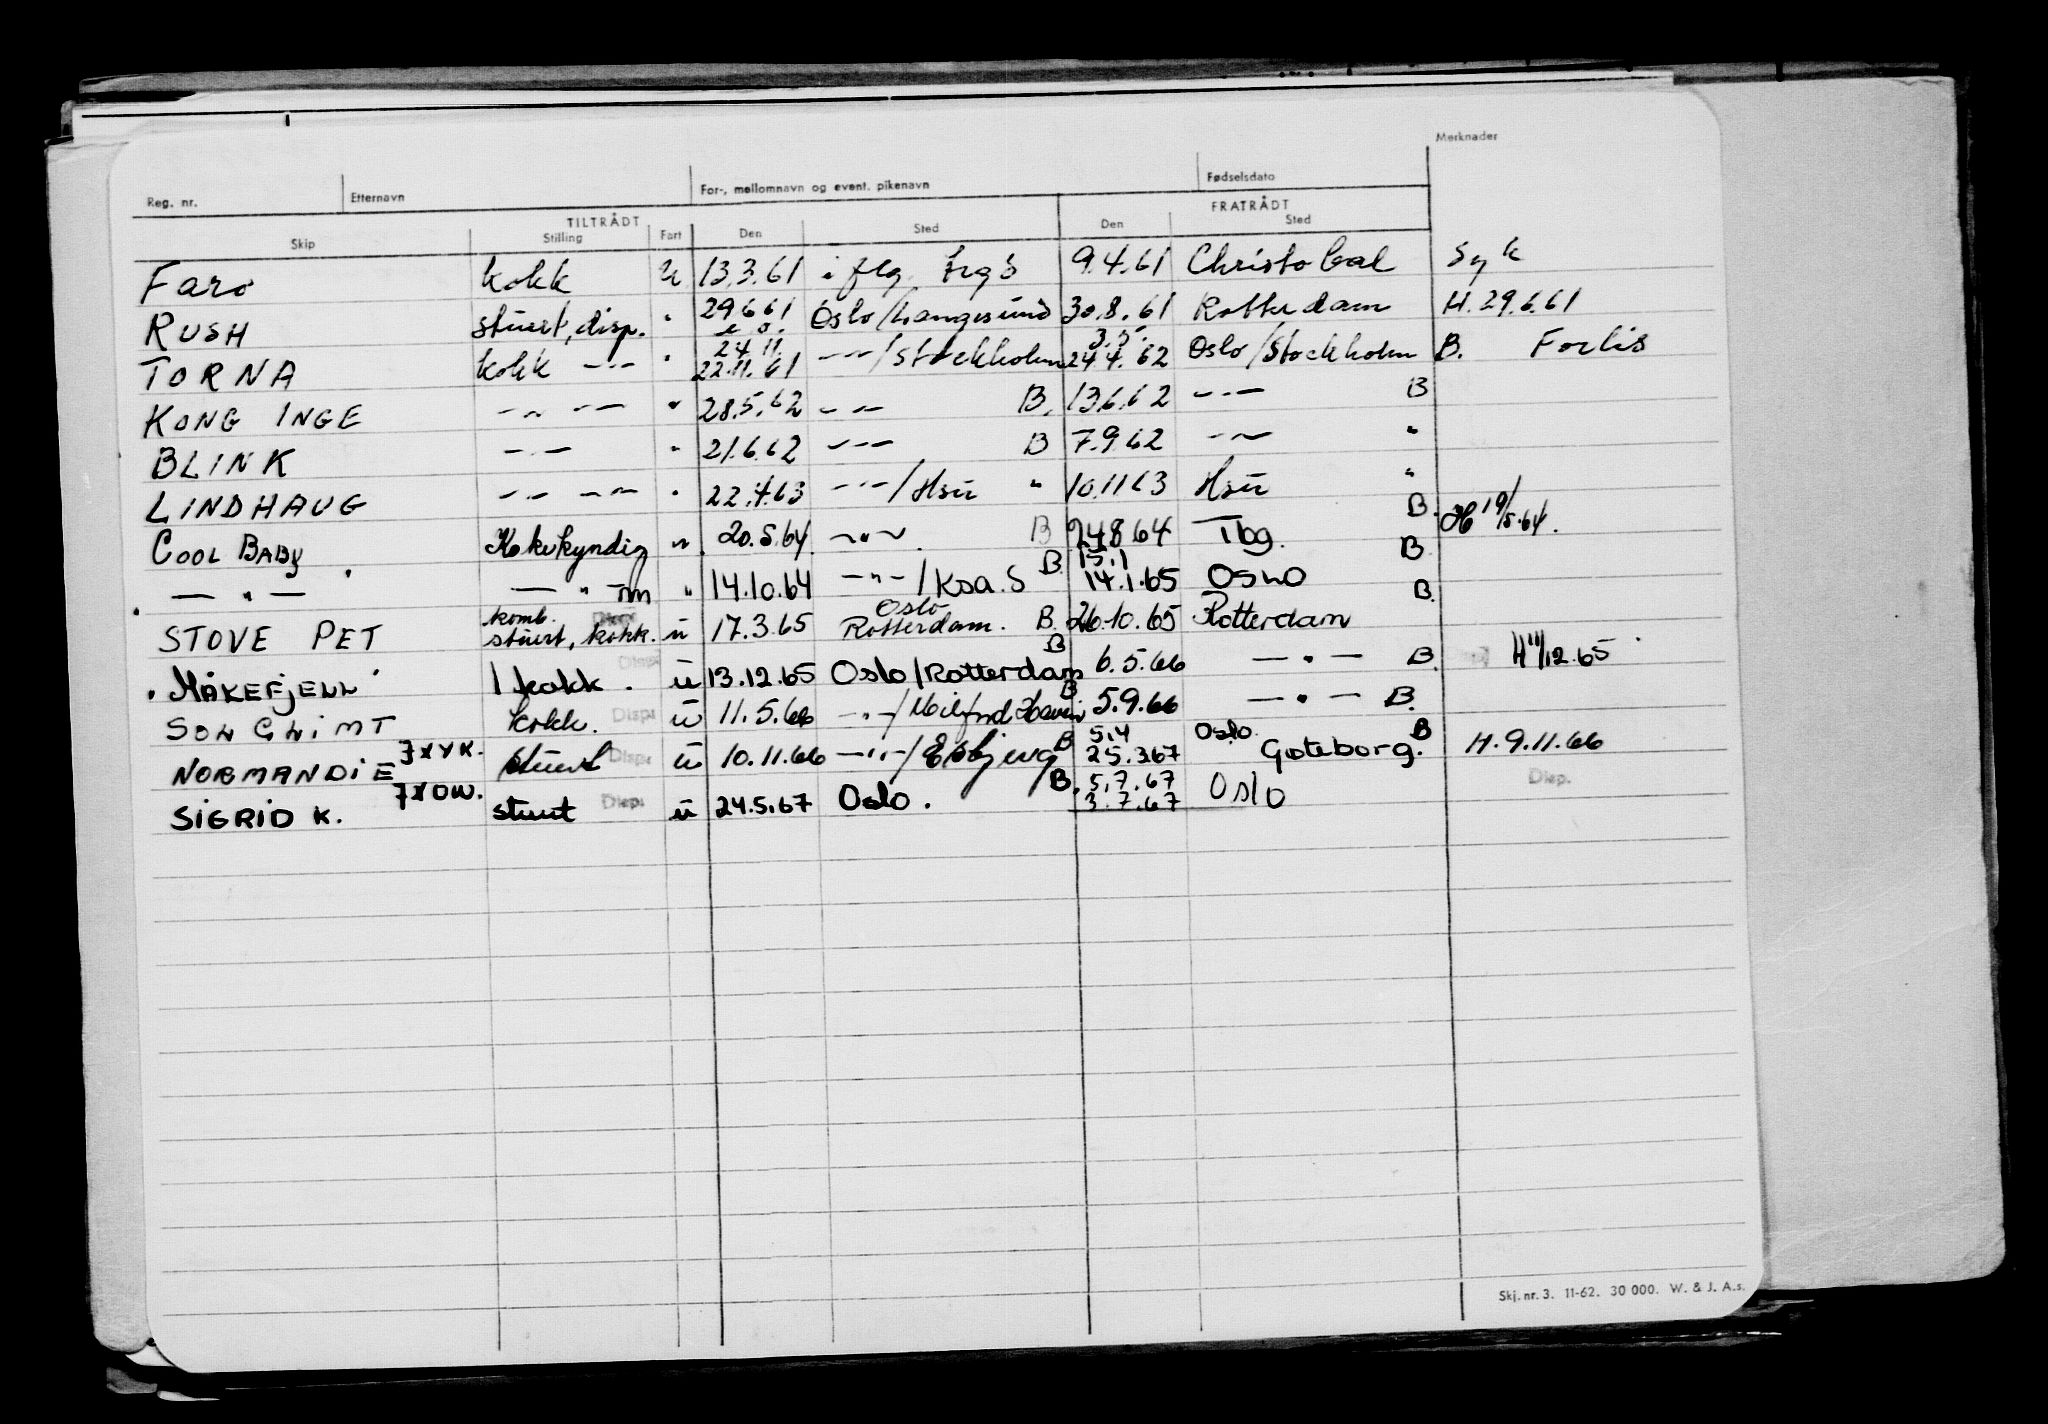 Merknader
Reg. nr. Etternavn For-, mellomnavn og event. pikenavn Fødselsdato
TILTRÅDT FRATRÅDT
Skip Stilling Fart Den Sted Den Sted
Faro kokk u 13.3.61 i flg. 9.4.61 Christobal Syk
RUSH stuert, disp. " 29.6.61 Oslo/Langesund 30.8.61 Rotterdam H. 29.6.61
24.11. 3.5.
TORNA kokk -"- " 22.11.61 -"-/Stockholm 24.4.62 Oslo/Stockholm B. Forlis
KONG INGE -"- -"- " 28.5.62 -"- B. 13.6.62 -"- B
BLINK -"- " 21.6.62 -"- B 7.9.62 -"- "
LINDHAUG -"- -"- " 22.4.63 -"-/Hsu " 10.11.63 Hsu "
COOL BABY Kokekyndig " 20.5.64 -"- B 24.8.64 Tbg. B. H 19/5.64.
15.1
-"- -"- " 14.10.64 -"-/Ksa. S B 14.1.65 OSLO B
komb. Oslo
STOVE PET stuert, kokk. u 17.3.65 Rotterdam. B. 26.10.65 Rotterdam B.
MÅKEFJELL 1 kokk. u 13.12.65 Oslo/Rotterdam B 6.5.66 -"- B. H 11/12.65
SOLGLIMT kokk. Disp. u 11.5.66 -"-/Milford Haven B 5.9.66 -"- B.
5.4 Oslo B
NORMANDIE JXYK. stuert Disp. u 10.11.66 -"-/Esbjerg B 25.3.67 Gøteborg. H. 9.11.66
5.7.67 Disp.
SIGRID K. JXOW. stuert Disp. u 24.5.67 Oslo. B. 3.7.67 Oslo
Skj. nr. 3. 11-62. 30 000. W. & J. A.s.